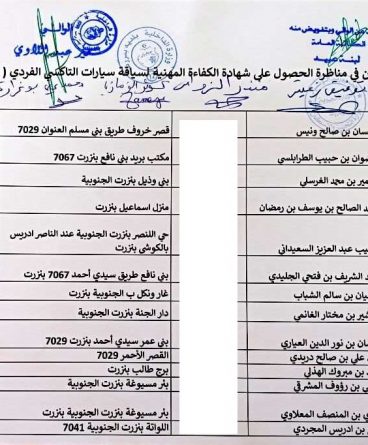 الوالي
عن الوالي وبتفويض منه
ن في مناظرة الحصول على شهادة الكفاءة المهنية لسياقة سيارات التاكسي الفردي (
سان بن صالح ونيس
قصر خروف طريق بني مسلم العنوان 7029
ضوان بن حبيب الطرابلسي
مكتب بريد بني نافع بنزرت 7067
مير بن محمد الغرسلي
بني وذيل بنزرت الجنوبية
مد الصالح بن يوسف بن رمضان
منزل اسماعيل بنزرت
يب عبد العزيز السعيداني
حي اللنصر بنزرت الجنوبية عند الناصر ادريس
بالكوشي بنزرت
د الشريف بن فتحي الجليدي
بني نافع طريق سيدي أحمد 7067 بنزرت
يان بن سالم الشياب
غار ونكل ب الجنوبية بنزرت
شير بن مختار الغانمي
دار الجنة بنزرت الجنوبية
ان بن نور الدين العياري
بني عمر سيدي أحمد بنزرت 7029
علي بن صالح دريدي
القصر الأحمر 7029
بن مبروك الهذلي
برج طالب بنزرت
ي بن رؤوف المشرقي
بئر مسيوغة بنزرت الجنوبية
ي بن المنصف المعلاوي
بئر مسيوغة بنزرت الجنوبية بنزرت
بن ادريس المجردي
اللواتة بنزرت الجنوبية 7041